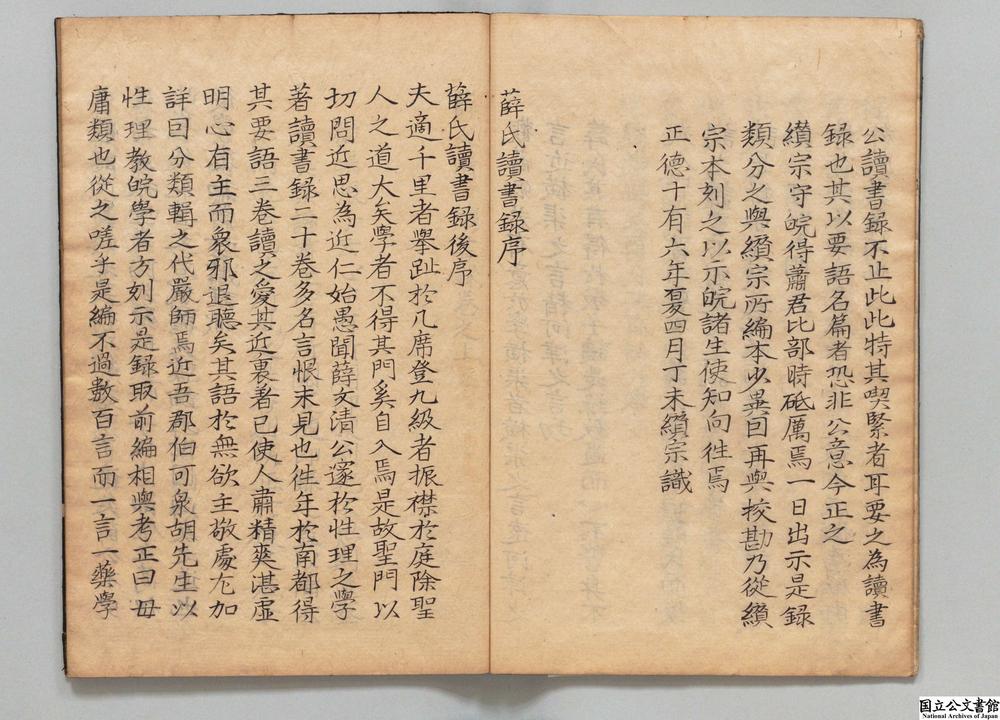 公讀書録不止此此特其喫緊者耳要之為讀書
録也其以要語名篇者恐非公意今正之
纉宗守皖得蕭君比部時砥厲焉一日出示是録
類分之與纉宗所編本少異曰再與挍勘乃從纉
宗本刻之以示皖諸生使知向徃焉
正德十有六年夏四月丁未纉宗識
薛氏讀書録序
薛氏讀書録後序
夫適千里者舉趾於几席登九級者振襟於庭除聖
人之道大矣學者不得其門奚自入焉是故聖門以
切問近思為近仁始愚聞薛文清公邃於性理之學
著讀書録二十卷多名言恨末見也徃年於南都得
其要語三卷讀之愛其近裏著已使人肅精爽湛虚
明心有主而衆邪退聽矣其語於無欲主敬處尤加
詳曰分類輯之代嚴師焉近吾郡伯可泉胡先生以
性理教皖學者方刻示是録取前編相與考正曰毋
庸類也從之嗟乎是編不過数百言而一言一藥學
国立公文書館
National Archives of Japan